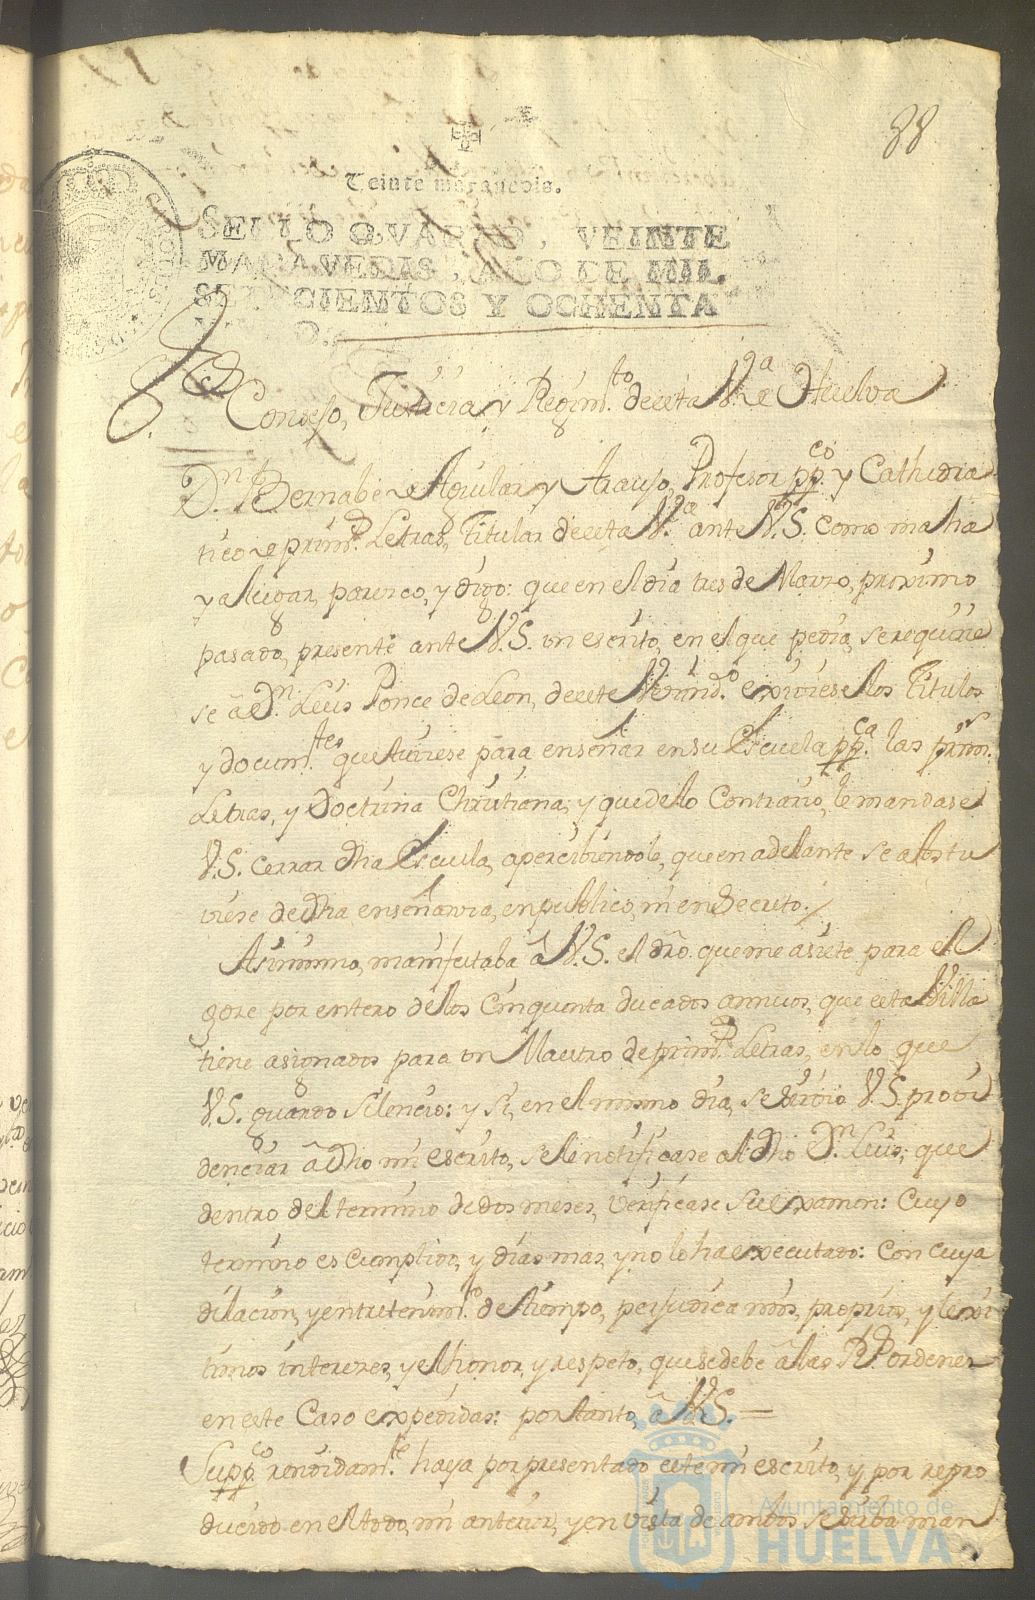 88
Veinte maravedis.
SELLO QVARTO, VEINTE
MARAVEDIS, AÑO DE MIL
SETECIENTOS Y OCHENTA
O.
Consejo, Justicia, y Regim.to de esta V.a de Huelva
D.n Bernabe de Aguilar y Araujo, Profesor pp.co y Cathedra
tico de prim.s Letras, Titular de esta V.a ante V.S. como mas ha
ya lugar, parezco, y digo: que en el dia tres de Marzo, proximo
pasado, presenté ante V.S. un escrito, en el que pedia, se requirie
se â D.n Luis Ponce de Leon, de este Vecind.o exiviese los Titulos
y docum.tes que tuviese para enseñar en su Escuela pp.ca las prim.s
Letras, y Doctrina Christiana; y que de lo Contrario, le mandase
V.S. cerrar dha Escuela, apercibiendole, que en adelante se abstu
viese de dha enseñanza, en publico, ni en Secreto.
Asimismo, manifestaba â V.S. el dro. que me asiste para el
goze por entero de los Cinquenta ducados annuos, que esta Villa
tiene asignados para un Maestro de prim.s Letras, en lo que
V.S. guardo silencio: y si, en el mismo dia, se sirvio V.S. provi
denciar â dho mi escrito, se le notificase al dho D.n Luis, que
dentro del termino de dos meses, verificase su examen: Cuyo
termino es cumplido, y dias mas, y no lo ha executado: Con cuya
dilacion, y entretenim.to de tiempo, perjudica mis, propios, y lexi
timos intereses, y el honor, y respeto, que se debe â las R.s ordenes
en este Caso expedidas: por tanto, â V.S. =
Supp.co rendidam.te haya por presentado este mi escrito, y por repro
ducido en el todo, mi anterior, y en vista de ambos se sirba man
Ayuntamiento de
HUELVA